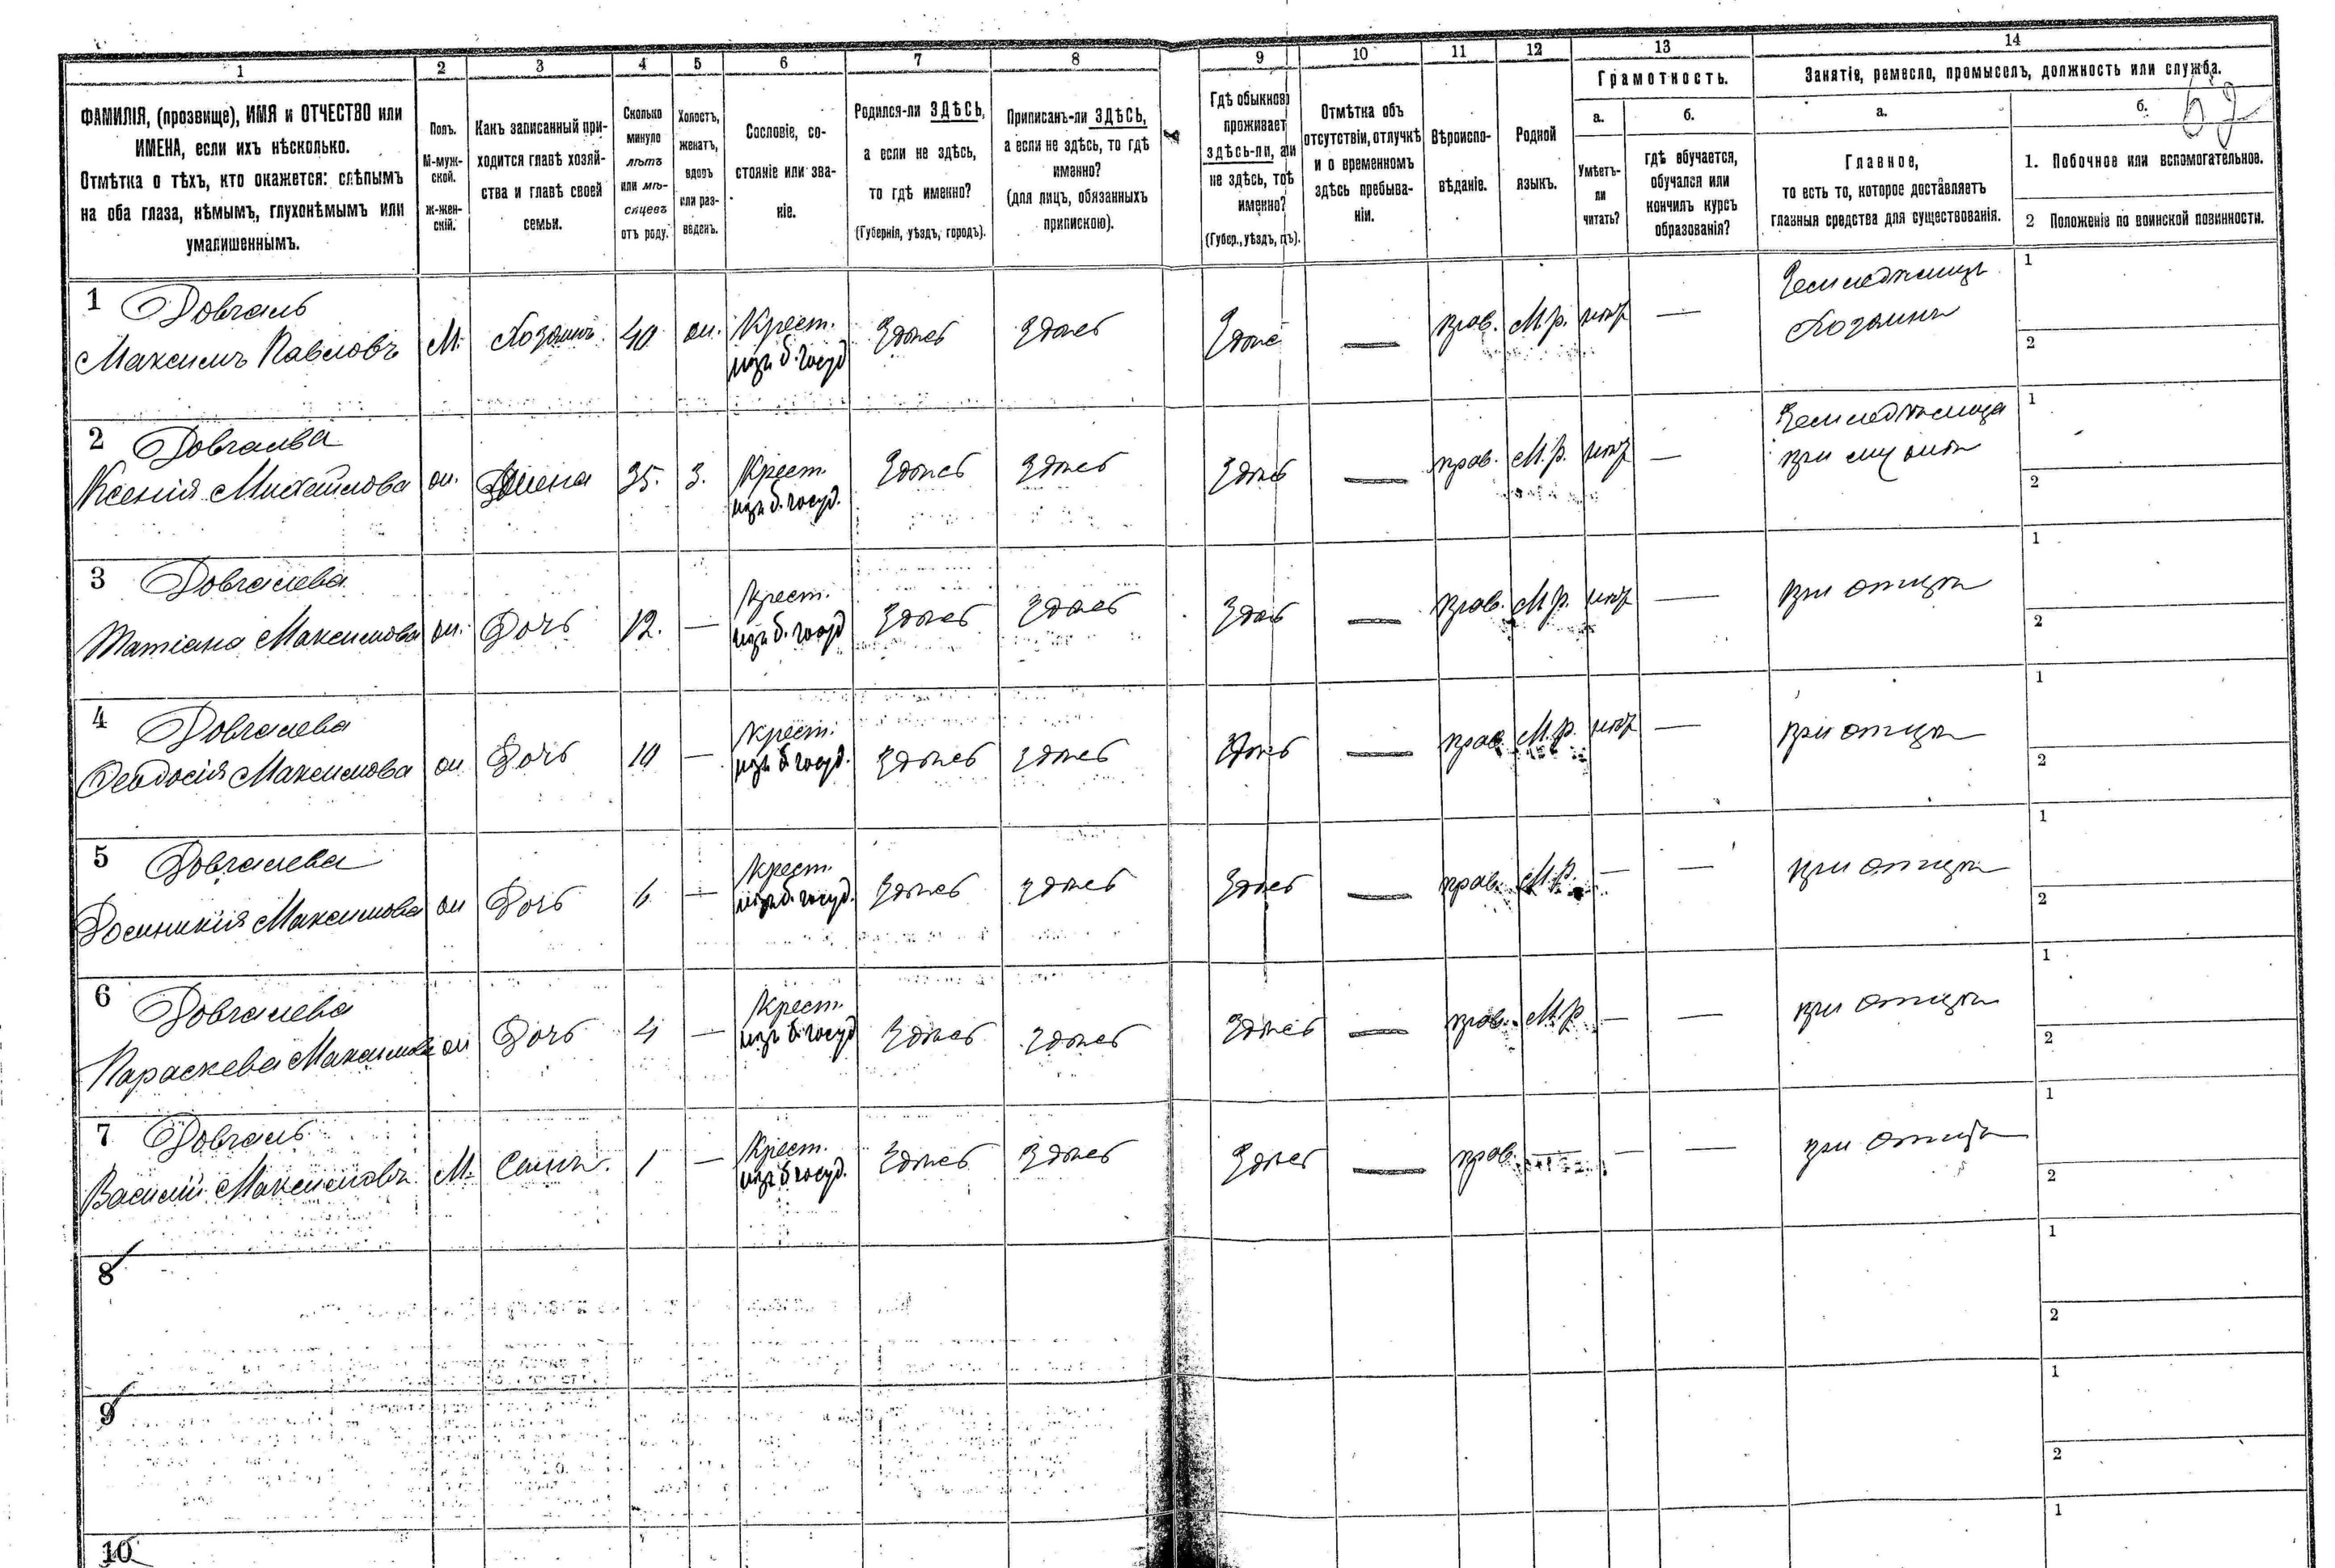 1 2 3 4 5 6 7 8 9 10 11 12 13 14
ФАМИЛІЯ, (прозвище), ИМЯ и ОТЧЕСТВО или
ИМЕНА, если ихъ нѣсколько.
Отмѣтка о тѣхъ, кто окажется: слѣпымъ
на оба глаза, нѣмымъ, глухонѣмымъ или
умалишеннымъ.
Полъ.
М-муж-
ской.
ж-жен-
скій.
Какъ записанный при-
ходится главѣ хозяй-
ства и главѣ своей
семьи.
Сколько
минуло
лѣтъ
или мѣ-
сяцевъ
отъ роду.
Холостъ,
женатъ,
вдовъ
или раз-
веденъ.
Сословіе, со-
стояніе или зва-
ніе.
Родился-ли ЗДѢСЬ,
а если не здѣсь,
то гдѣ именно?
(Губернія, уѣздъ, городъ).
Приписанъ-ли ЗДѢСЬ,
а если не здѣсь, то гдѣ
именно?
(для лицъ, обязанныхъ
припискою).
Гдѣ обыкнов
проживает
здѣсь-ли, а
не здѣсь, то
именно?
(Губер., уѣздъ,
Отмѣтка объ
отсутствіи, отлучкѣ
и о временномъ
здѣсь пребыва-
ніи.
Вѣроиспо-
вѣданіе.
Родной
языкъ.
Грамотность.
а.
Умѣетъ-
ли
читать?
б.
гдѣ обучается,
обучался или
кончилъ курсъ
образованія?
Занятіе, ремесло, промыселъ, должность или служба.
а.
Главное,
то есть то, которое доставляетъ
главныя средства для существованія.
б.
1. Побочное или вспомогательное.
2 Положеніе по воинской повинности.
1 Довгаль
Максимъ Павловъ М. Хозяинъ 40 ж. Крест.
изъ б. госуд Здѣсь Здѣсь Здѣс — прав. М.р. нѣт — Земледѣлецъ
Хозяинъ
1
2
2 Довгалва
Ксенія Михайлова ж. Жена 35. З. Крест.
изъ б. госуд. Здѣсь Здѣсь Здѣсь — прав. М.р. нѣт — Земледѣлица
при мужѣ
1
2
3 Довгалева
Татіана Максимова ж. Дочь 12. — Крест.
изъ б. госуд Здѣсь Здѣсь Здѣсь — прав. М.р. нѣт — при отцѣ
1
2
4 Довгалева
Ѳеодосія Максимова ж Дочь 10 — Крест.
изъ б госуд. Здѣсь Здѣсь Здѣсь — прав М.р. нѣт — при отцѣ
1
2
5 Довгалева
Домникія Максимова ж Дочь 6 — Крест.
изъ б. госуд. Здѣсь Здѣсь Здѣсь — прав. М.р. — — при отцѣ
1
2
6 Довгалева
Параскева Максимова ж Дочь 4 — Крест.
изъ б. госуд Здѣсь Здѣсь Здѣсь — прав. М.р. — — при отцѣ
1
2
7 Довгаль
Василій Максимовъ М. Сынъ. 1 — Крест.
изъ б госуд. Здѣсь Здѣсь Здѣсь — прав. — — — при отцѣ
1
2
8
1
2
9
1
2
10
1